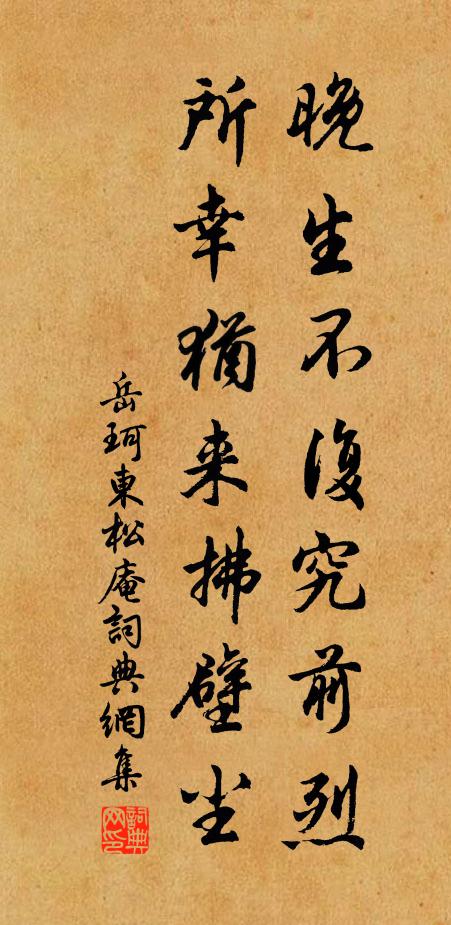 晚生不復究前烈
所幸猶来拂壁尘
岳珂東松庵詞典網集
詞典網印